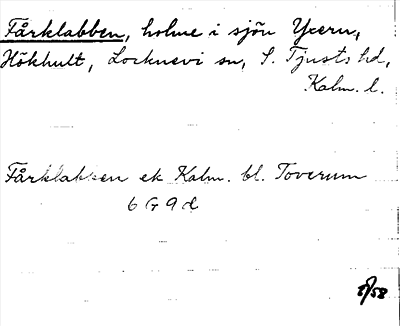 Fårklabben, holme i sjön Yxern,
Hökhult, Locknevi sn, S. Tjusts hd,
Kalm. l.
Fårklabben ek Kalm. bl. Toverum
6 G 9 d
58